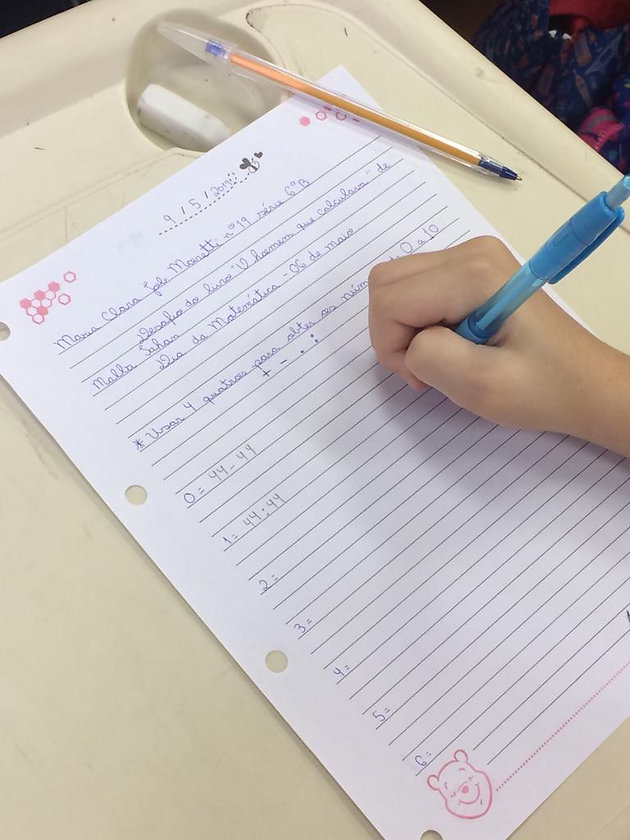 9 / 5 / 2019
Maria Clara Job Moretti nº 19 série 6º B
Desafio do livro "O homem que calculava" de
Malba Tahan
Dia da Matemática - 06 de maio
* Usar 4 quatros para obter os núm 0 a 10
+ - . :
0 = 44 - 44
1 = 44 : 44
2 =
3 =
4 =
5 =
6 =